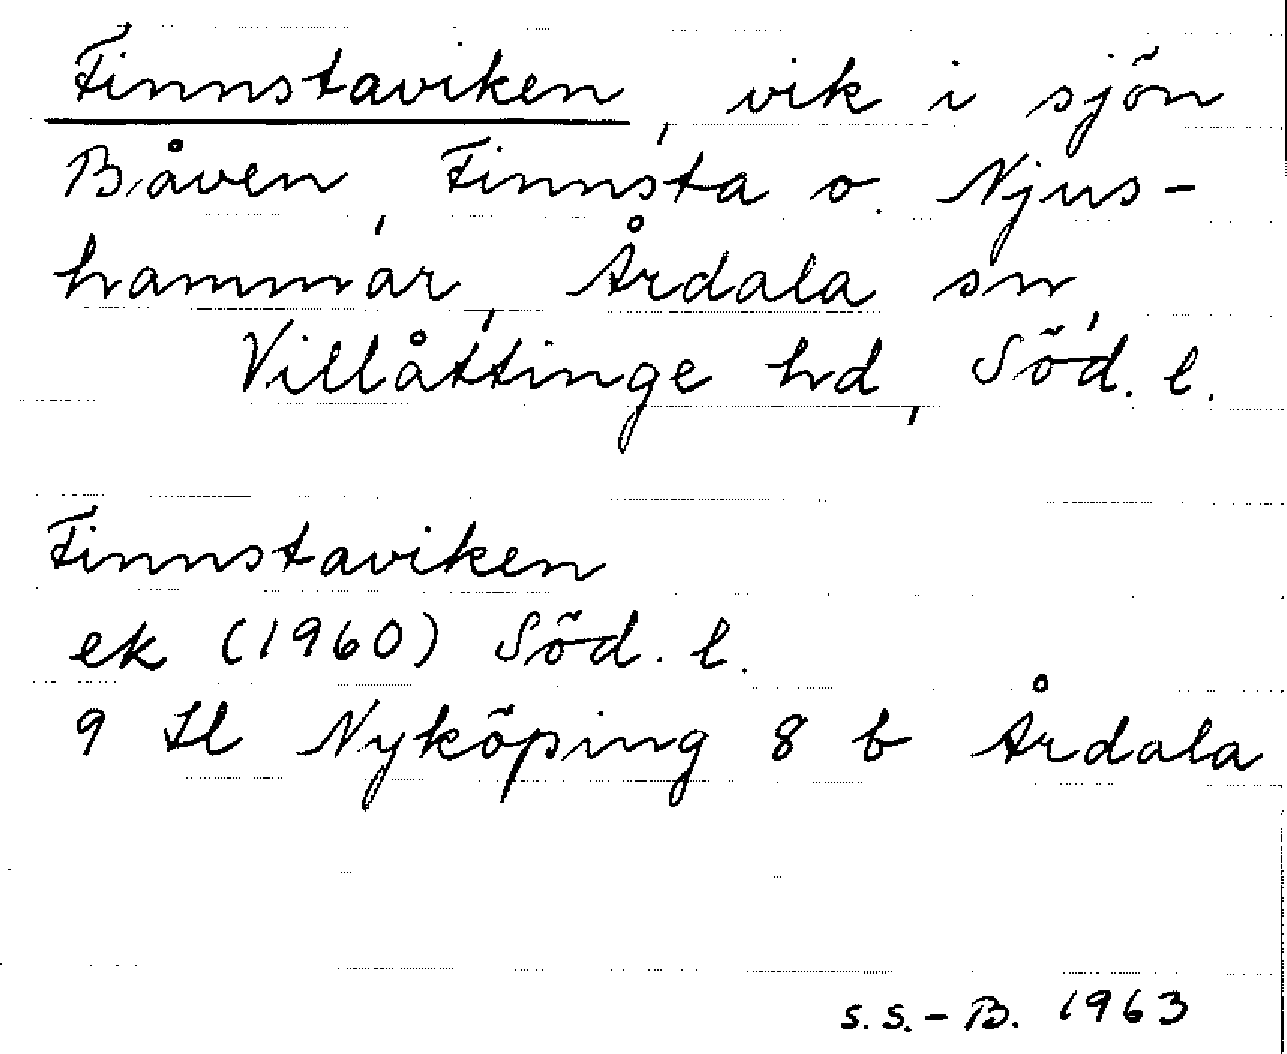 Finnstaviken, vik i sjön
Båven, Finnsta o. Njus-
hammar, Årdala sn,
Villåttinge hd, Söd. l.
Finnstaviken
ek (1960) Söd. l.
9 Hl Nyköping 8 b Årdala
S.S.-B. 1963